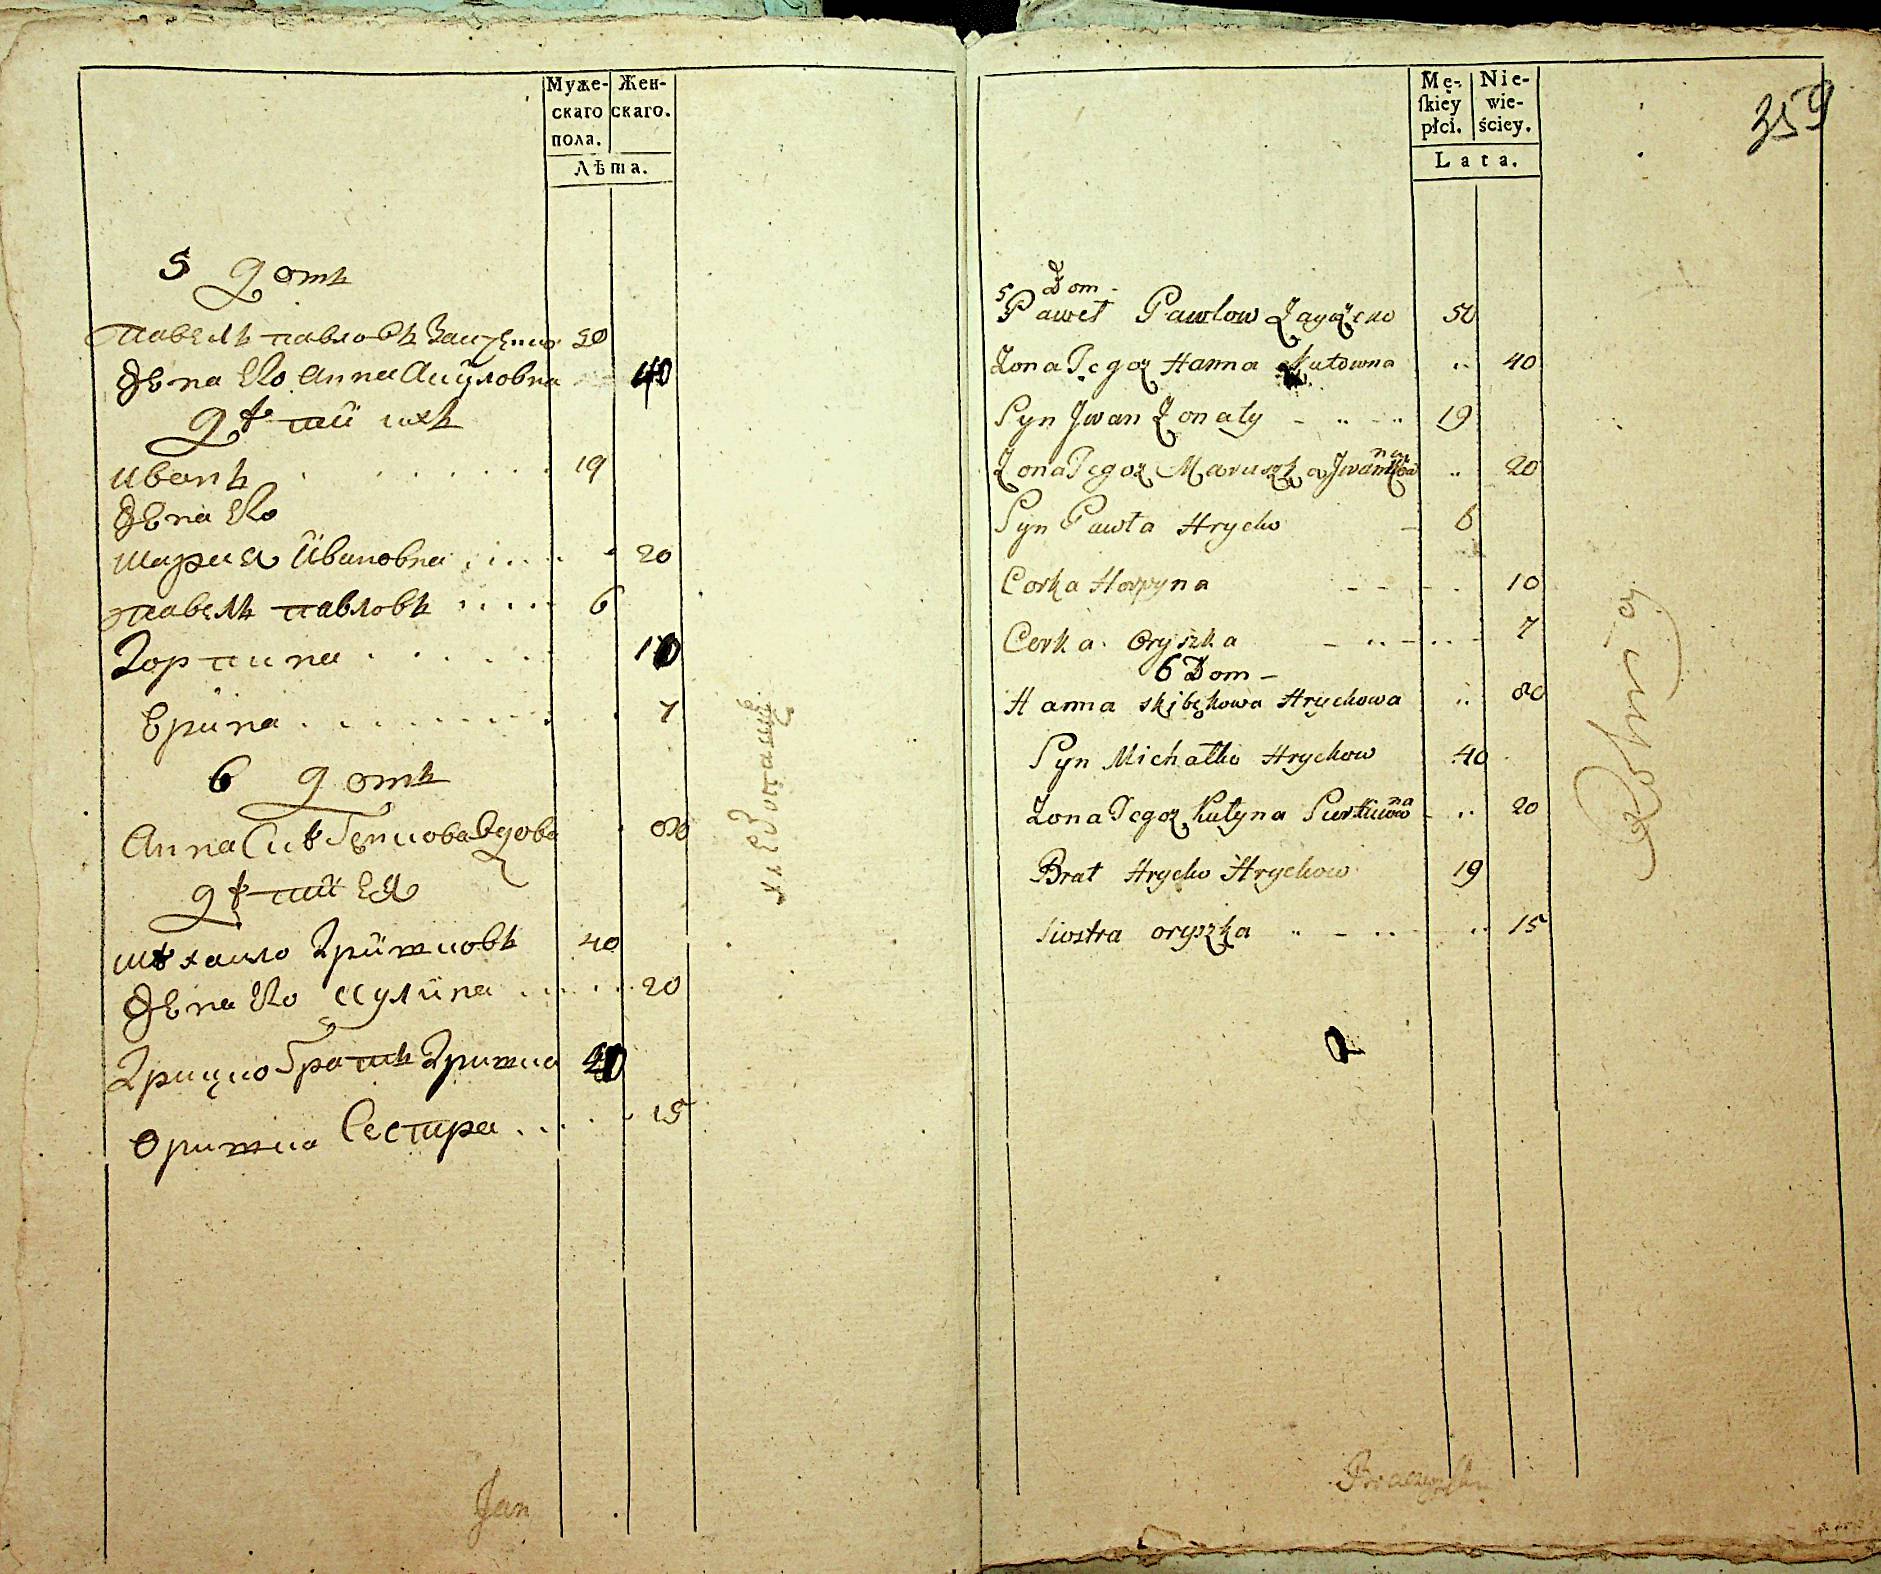 Муже-
скаго
пола.
Жен-
скаго.
Лѣта.
5 домъ
павелъ павловъ 50
жена Его анна 40
дѣти ихъ
иванъ 19
жена Его
мария ивановна 20
павелъ павловъ 6
Горпина 10
Ерина 7
6 домъ
Анна вдова 80
дѣти Ея
михаило Гришковъ 40
жена Его Кулина 20
Грицко братъ Гришка
Оришка Сестра 15
хлебопашцъ
Jan
Mę-
skiey
płci.
Nie-
wie-
ściey.
Lata.
359
5 Dom
Paweł Pawlow 50
Zona Tegoz Hanna 40
Syn Jwan Zonaty 19
Zona Tegoz Maruszka 20
Syn Pawła Hrycko 6
Corka Horpyna 10
Corka Oryszka 7
6 Dom
Hanna skibickowa Hryckowa 80
Syn Michałko Hryckow 40
Zona Tegoz Kulyna 20
Brat Hrycko Hryckow 19
Siostra oryszka 15
Rolnicÿ